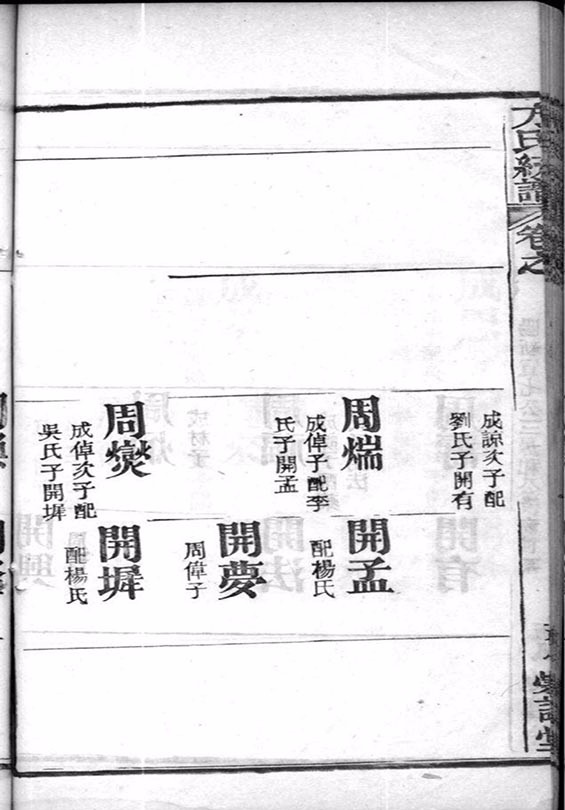 方氏統譜
卷之
成諒次子配
劉氏子開有
周煓
成倬子配李
氏子開孟
周爕
成倬次子配
吳氏子開墀
開孟
配楊氏
開夢
周偉子
開墀
配楊氏